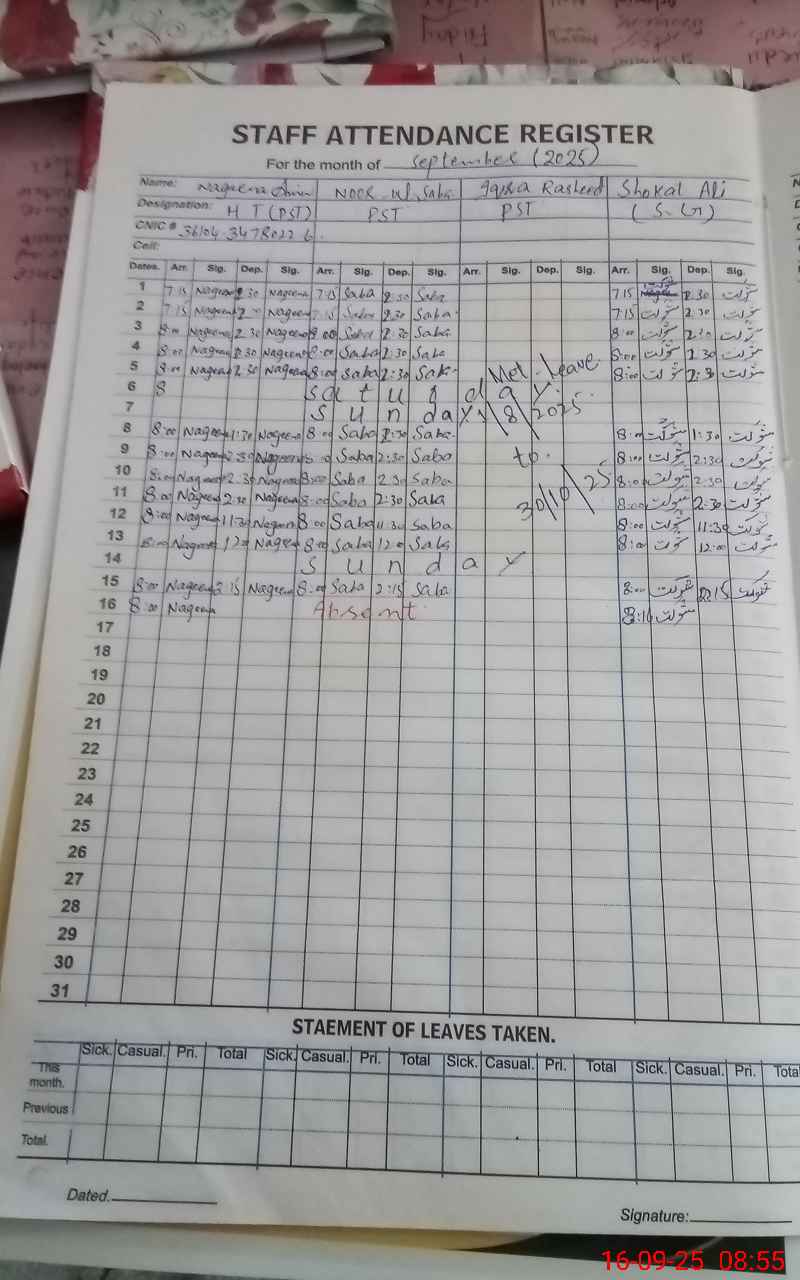 STAFF ATTENDANCE REGISTER
For the month of September (2025)
Name: Nageena NOOR ul Saba Iqra Rasheed Shokat Ali
Designation: H T (PST) PST PST (S.G)
CNIC # 36104 3478022 6
Cell:
Dates. Arr. Sig. Dep. Sig. Arr. Sig. Dep. Sig. Arr. Sig. Dep. Sig. Arr. Sig. Dep. Sig.
1 7:15 Nageena 2:30 Nageena 7:15 Saba 2:30 Saba 7:15 شوکت 2:30 شوکت
2 7:15 Nageena 2:30 Nageena 7:15 Saba 2:30 Saba 7:15 شوکت 2:30 شوکت
3 8:00 Nageena 2:30 Nageena 8:00 Saba 2:30 Saba 8:00 شوکت 2:30 شوکت
4 8:00 Nageena 2:30 Nageena 8:00 Saba 2:30 Saba 8:00 شوکت 2:30 شوکت
5 8:00 Nageena 2:30 Nageena 8:00 Saba 2:30 Saba Met. Leave. 8:00 شوکت 2:30 شوکت
6 8 Saturday
7 Sunday 1/8/2025
8 8:00 Nageena 1:30 Nageena 8:00 Saba 1:30 Saba 8:00 شوکت 1:30 شوکت
9 8:00 Nageena 2:30 Nageena 8:00 Saba 2:30 Saba to. 8:00 شوکت 2:30 شوکت
10 8:00 Nageena 2:30 Nageena 8:00 Saba 2:30 Saba 30/10/25 8:00 شوکت 2:30 شوکت
11 8:00 Nageena 2:30 Nageena 8:00 Saba 2:30 Saba 8:00 شوکت 2:30 شوکت
12 8:00 Nageena 11:30 Nageena 8:00 Saba 11:30 Saba 8:00 شوکت 11:30 شوکت
13 8:00 Nageena 12:00 Nageena 8:00 Saba 12:00 Saba 8:00 شوکت 12:00 شوکت
14 Sunday
15 8:00 Nageena 2:15 Nageena 8:00 Saba 2:15 Saba 8:00 شوکت 2:15 شوکت
16 8:00 Nageena Absent 8:10 شوکت
17
18
19
20
21
22
23
24
25
26
27
28
29
30
31
STAEMENT OF LEAVES TAKEN.
Sick. Casual. Pri. Total Sick. Casual. Pri. Total Sick. Casual. Pri. Total Sick. Casual. Pri. Total
This month.
Previous
Total.
Dated.
Signature:
16-09-25 08:55